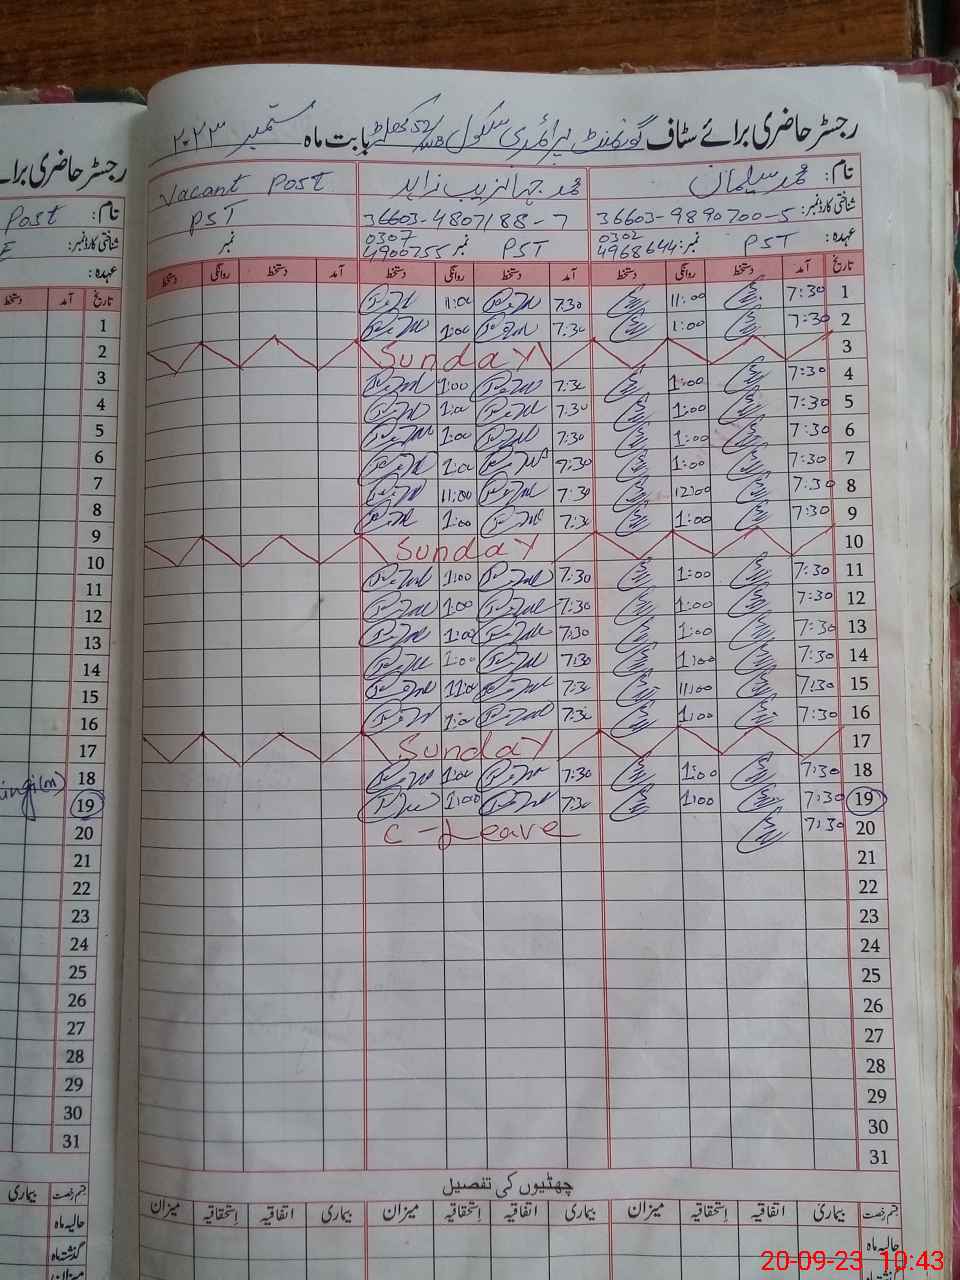 رجسٹر حاضری برائے سٹاف گورنمنٹ پرائمری سکول 52/WB بابت ماہ ستمبر ۲۰۲۳
نام: محمد سلیمان محمد جہانزیب زاہد Vacant Post
شناختی کارڈ نمبر: 36603-9890700-5 36603-4807188-7 PST
عہدہ: PST نمبر: 0302 4968644 PST نمبر 0307 4900755 نمبر
تاریخ آمد دستخط روانگی دستخط آمد دستخط روانگی دستخط آمد دستخط روانگی دستخط
1 7:30 11:00 7:30 11:00
2 7:30 1:00 7:30 1:00
3 Sunday
4 7:30 1:00 7:30 1:00
5 7:30 1:00 7:30 1:00
6 7:30 1:00 7:30 1:00
7 7:30 1:00 7:30 1:00
8 7:30 12:00 7:30 11:00
9 7:30 1:00 7:30 1:00
10 Sunday
11 7:30 1:00 7:30 1:00
12 7:30 1:00 7:30 1:00
13 7:30 1:00 7:30 1:00
14 7:30 1:00 7:30 1:00
15 7:30 11:00 7:30 11:00
16 7:30 1:00 7:30 1:00
17 Sunday
18 7:30 1:00 7:30 1:00
19 7:30 1:00 7:30 1:00
20 7:30 C-Leave
21
22
23
24
25
26
27
28
29
30
31
چھٹیوں کی تفصیل
قسم رخصت بیماری اتفاقیہ استحقاقیہ میزان بیماری اتفاقیہ استحقاقیہ میزان بیماری اتفاقیہ استحقاقیہ میزان
حالیہ ماہ
گذشتہ ماہ
رجسٹر حاضری
نام: Post
شناختی کارڈ نمبر:
عہدہ:
تاریخ آمد دستخط
1
2
3
4
5
6
7
8
9
10
11
12
13
14
15
16
17
18
19
20
21
22
23
24
25
26
27
28
29
30
31
قسم رخصت بیماری
حالیہ ماہ
گذشتہ ماہ
میزان
20-09-23 10:43